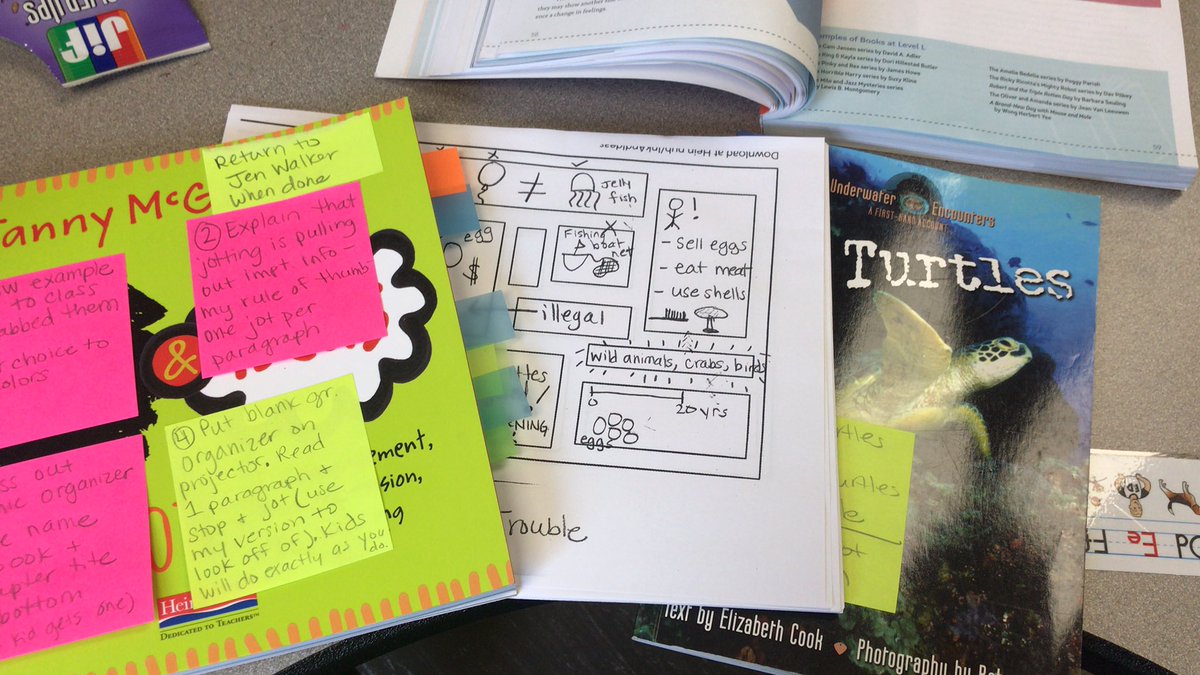 JIF
they may show another
ence a change in feelings.
58
Examples of Books at Level L
Cam Jansen series by David A. Adler
King & Kayla series by Dori Hillestad Butler
Pinky and Rex series by James Howe
Horrible Harry series by Suzy Kline
Milo and Jazz Mysteries series
by Lewis B. Montgomery
The Amelia Bedelia series by Peggy Parish
The Ricky Ricotta's Mighty Robot series by Dav Pilkey
Robert and the Triple Rotten Day by Barbara Seuling
The Oliver and Amanda series by Jean Van Leeuwen
A Brand-New Day with Mouse and Mole
by Wong Herbert Yee
59
Return to
Jen Walker
when done
anny McG
② Explain that
jotting is pulling
out impt. info
my rule of thumb
one jot per
paragraph
example
to class
tabbed them
choice to
colors
&
④ Put blank gr.
organizer on
projector. Read
1 paragraph +
stop + jot (use
my version to
look off of). Kids
will do exactly as you
do.
out
organizer
name
book +
title
bottom
gets one)
DEDICATED TO TEACHERS™
Download at
≠
jelly
fish
egg
$
Fishing
boat
net
!
- sell eggs
- eat meat
- use shells
illegal
wild animals, crabs, birds
0 20 yrs
eggs
NING
Trouble
Underwater Encounters
A FIRST-HAND ACCOUNT
Turtles
Text by Elizabeth Cook
Photography by
Ee